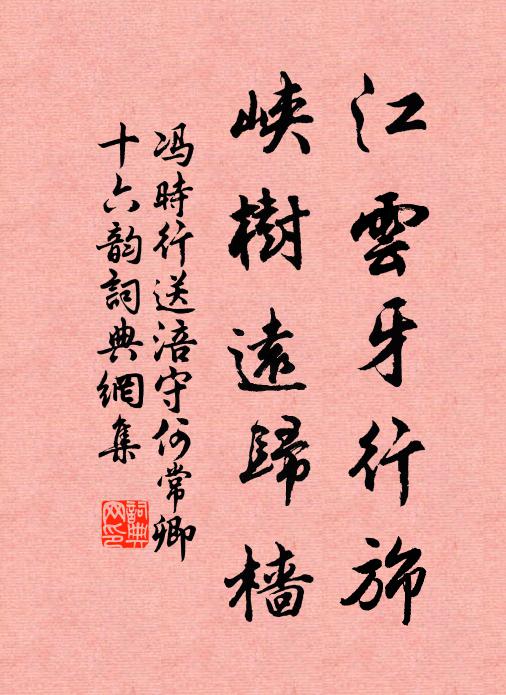 江雲牙行旆
峽樹遠歸檣
冯時行送涪守何常卿
十六韵詞典網集
詞典网印